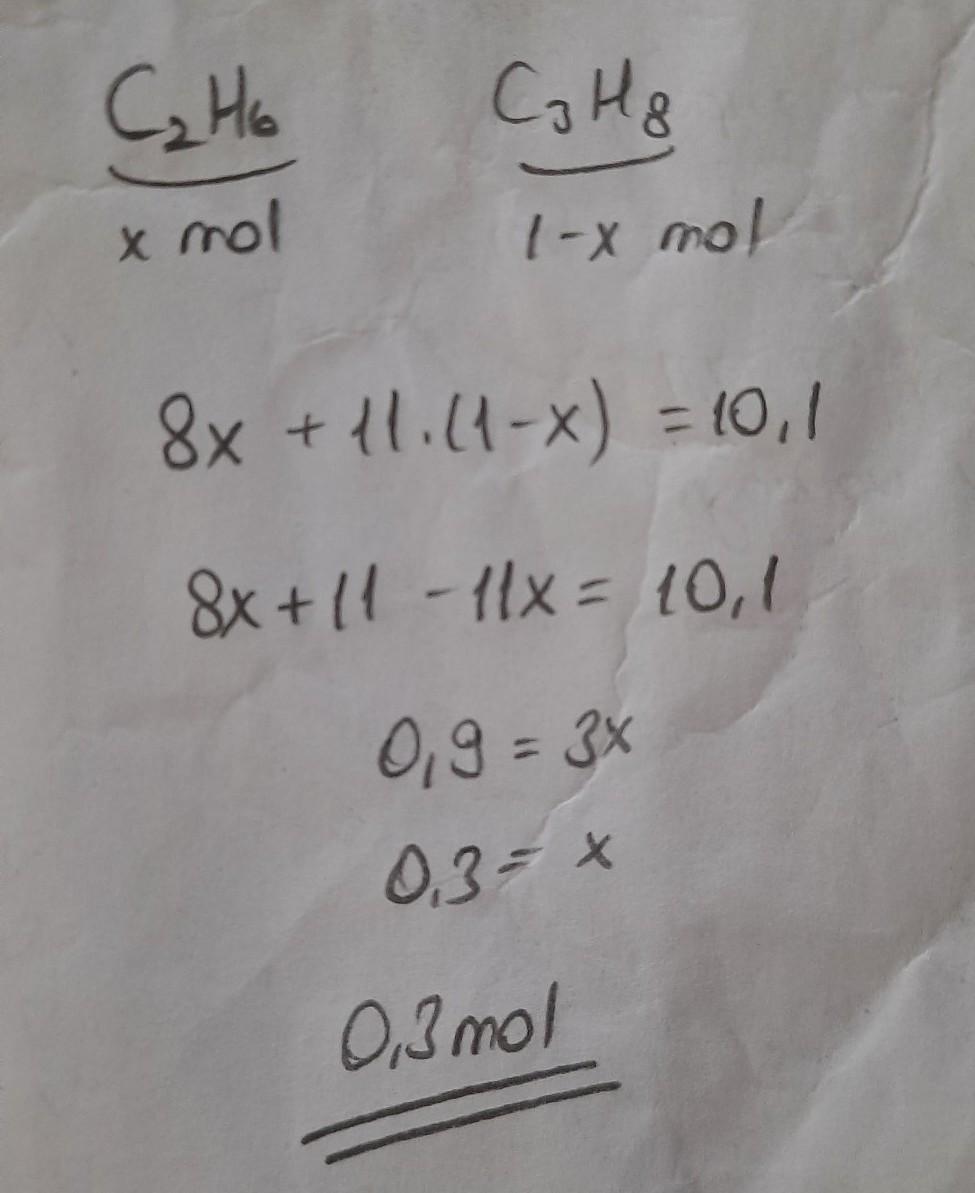 C₂H₆ C₃H₈
x mol 1-x mol
8x + 11.(1-x) = 10,1
8x + 11 - 11x = 10,1
0,9 = 3x
0,3 = x
0,3 mol